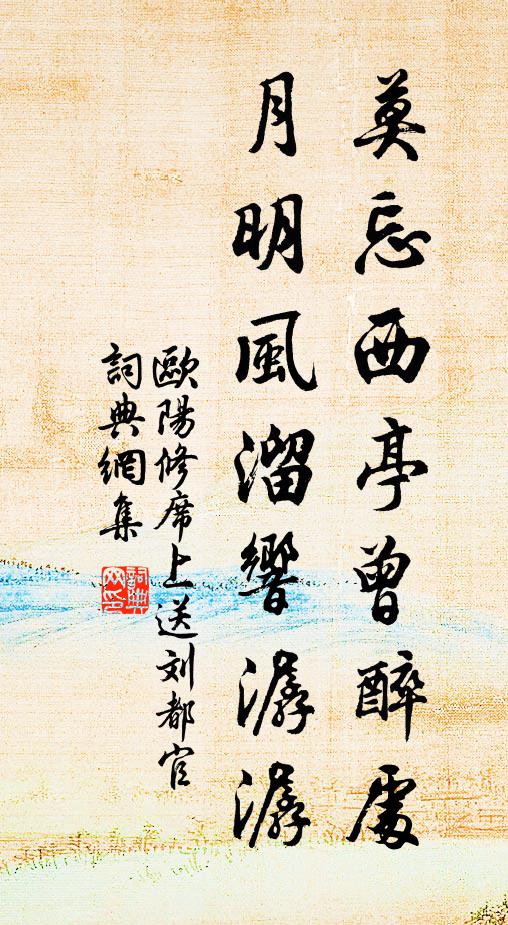 莫忘西亭曾醉處
月明風溜響潺潺
歐陽修席上送刘都官
詞典網集